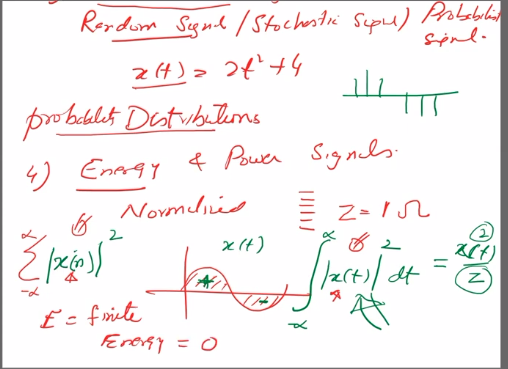 Random Signal / Stochastic Signal) Probabilistic
signal.
x(t) = 2t² + 4
probablet Distributions
4) Energy & Power Signals.
Normalized Z = 1 Ω
∑ |x(n)|² x(t) ∫ |x(t)|² dt = x(t)² / Z
α -α α -α
E = finite
Energy = 0